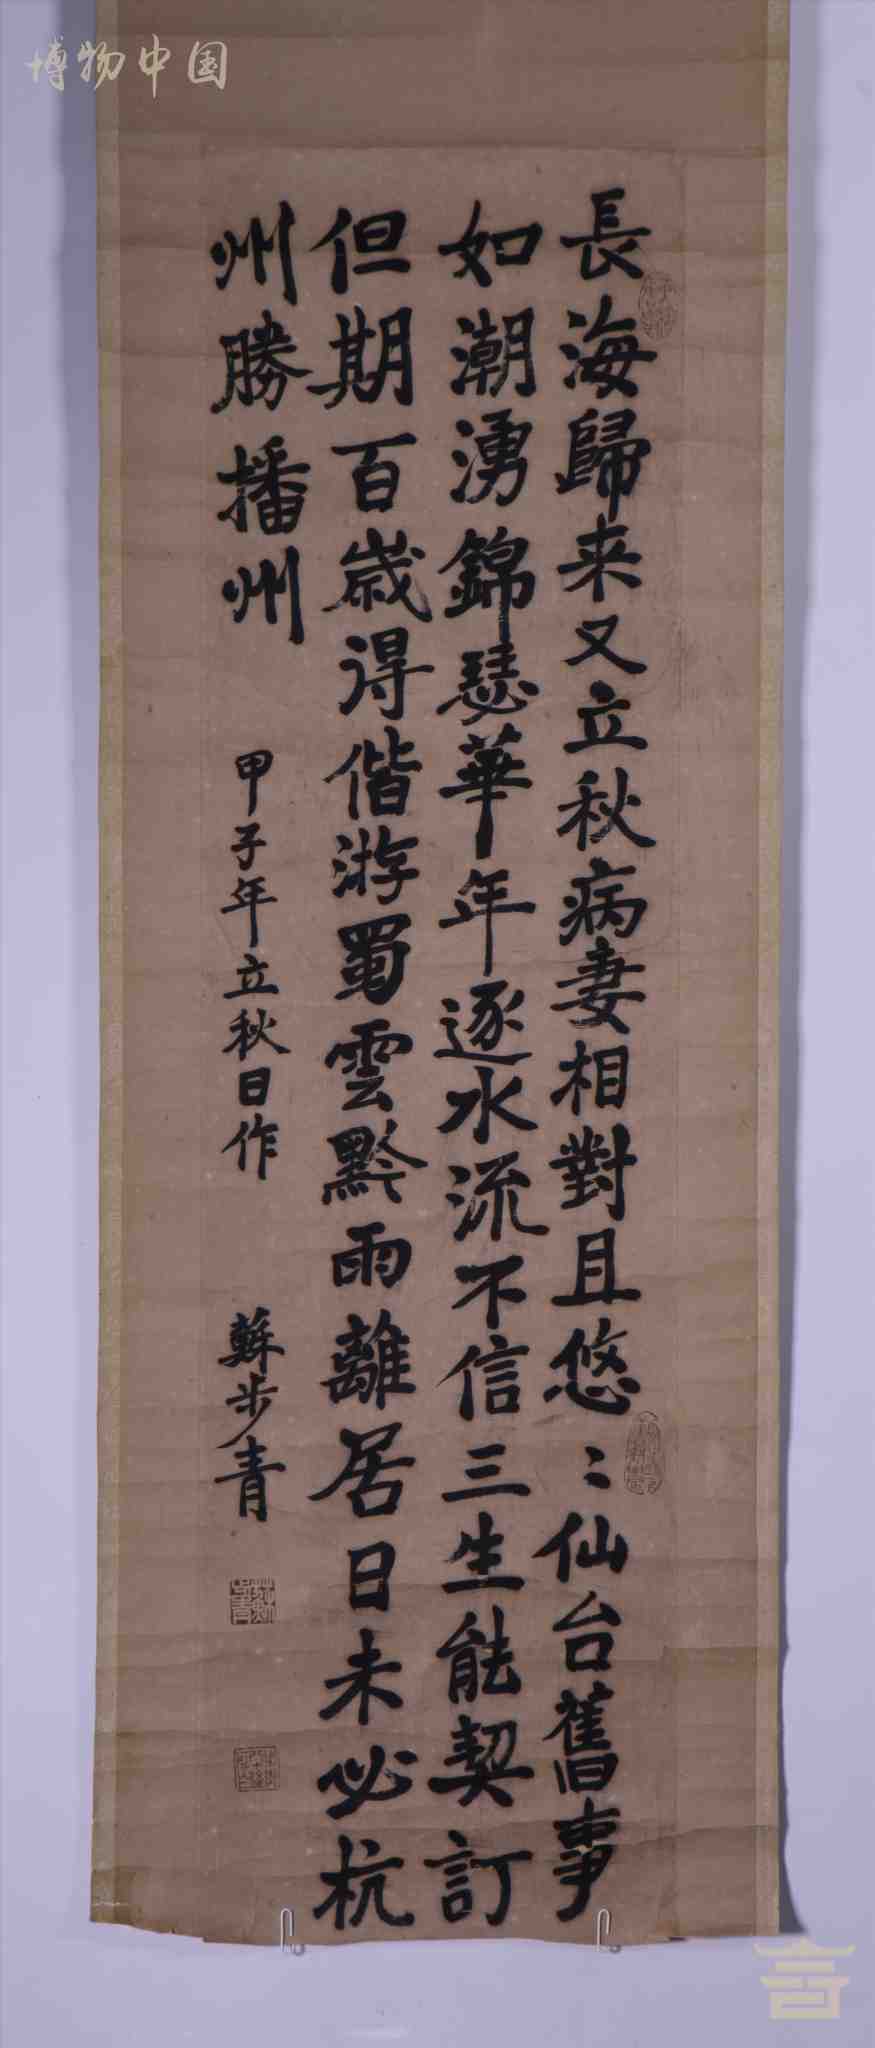 博物中国
長海歸来又立秋病妻相對且悠〻仙台舊事
如潮湧錦瑟華年逐水流不信三生能契訂
但期百歲得偕游蜀雲黔雨離居日未必杭
州勝播州
甲子年立秋日作
蘇步青